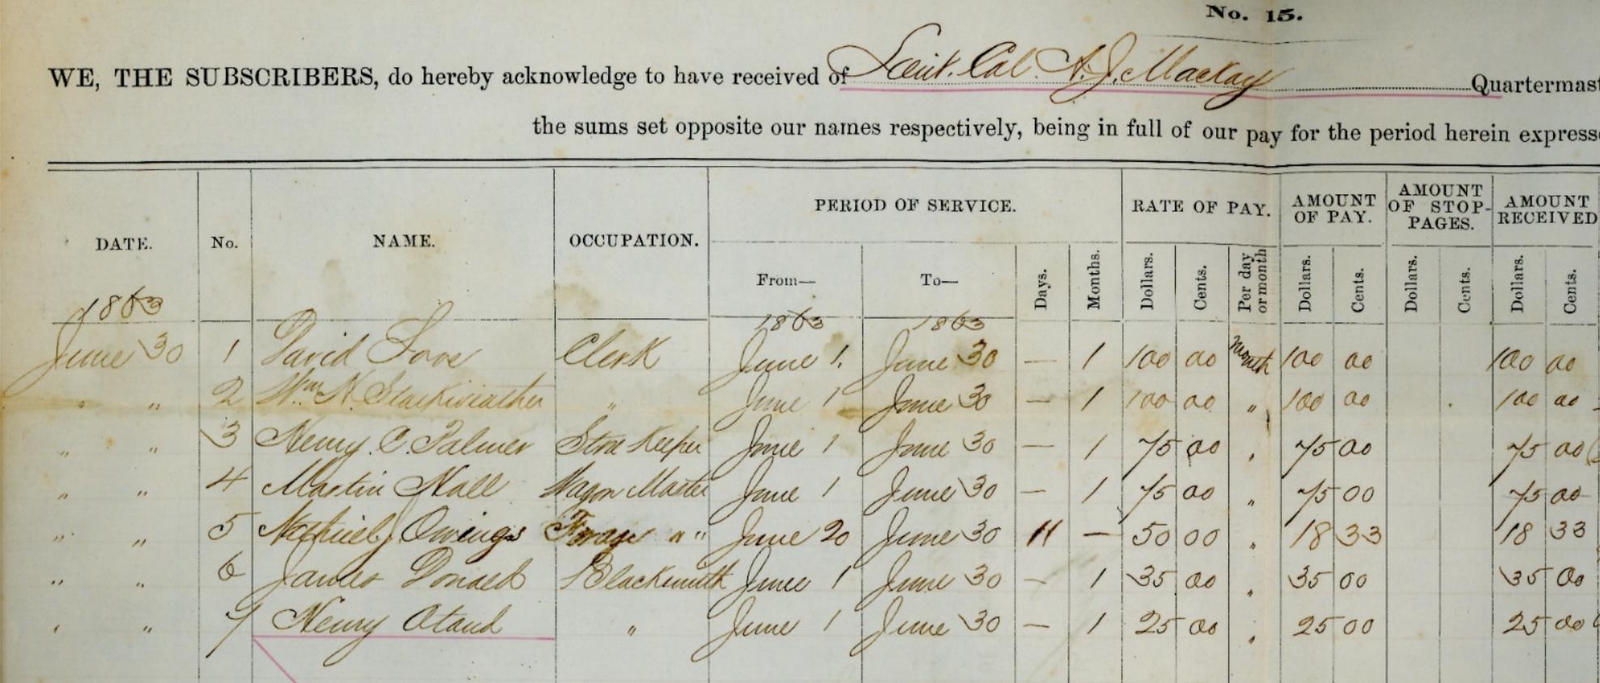 No. 15.
WE, THE SUBSCRIBERS, do hereby acknowledge to have received of Lieut. Col. A. J. Mackay Quartermast
the sums set opposite our names respectively, being in full of our pay for the period herein express
DATE. No. NAME. OCCUPATION. PERIOD OF SERVICE. RATE OF PAY. AMOUNT OF PAY. AMOUNT OF STOP-PAGES. AMOUNT RECEIVED
From— To— Days. Months. Dollars. Cents. Per day or month Dollars. Cents. Dollars. Cents. Dollars. Cents.
1863 1863 1863
June 30 1 David Love Clerk June 1. June 30 — 1 100 00 Month 100 00 100 00
" " 2 Wm. H. Starkweather " June 1 June 30 — 1 100 00 " 100 00 100 00
" " 3 Henry C. Palmer Store Keeper June 1 June 30 — 1 75 00 " 75 00 75 00
" " 4 Martin Hall Wagon Master June 1 June 30 — 1 75 00 " 75 00 75 00
" " 5 Owings Forage " " June 20 June 30 11 — 50 00 " 18 33 18 33
" " 6 James Donald Blacksmith June 1 June 30 — 1 35 00 " 35 00 35 00
" " 7 Henry " June 1 June 30 — 1 25 00 " 25 00 25 00